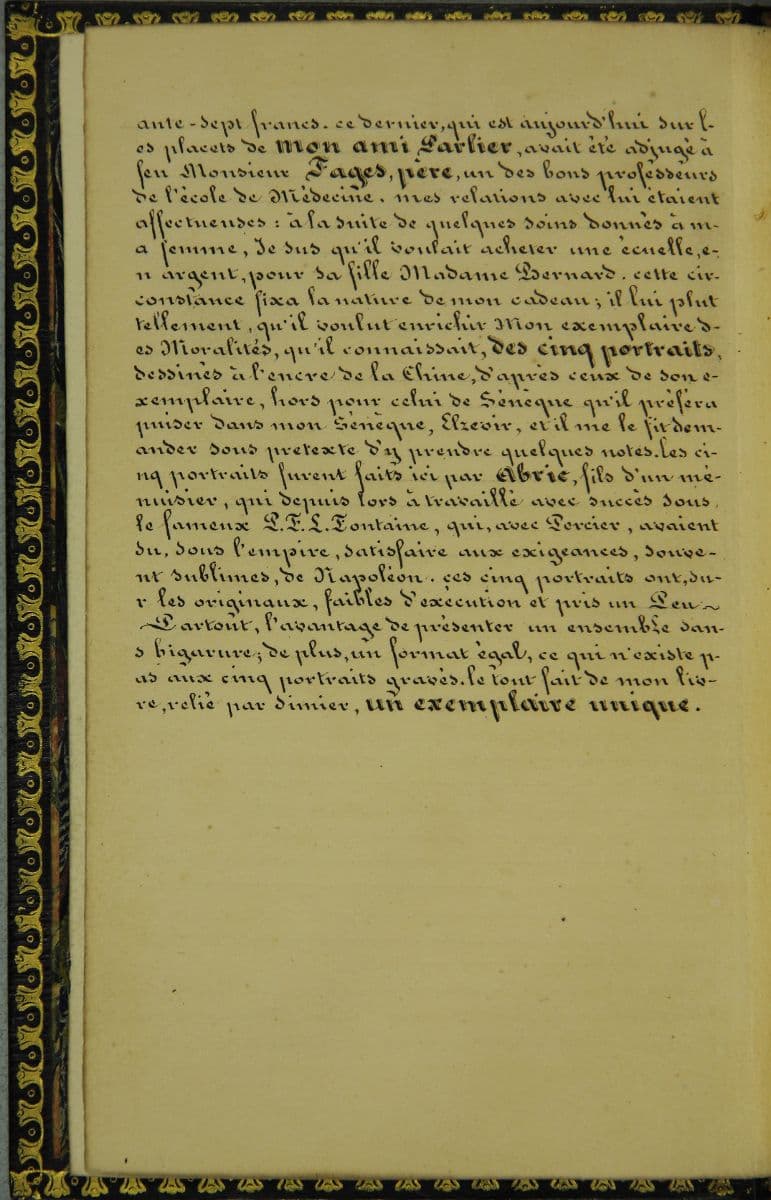 ante-sept francs. ce dernier, qui est aujourd'hui sur l-
es placets de mon ami Parlier, avait été adjugé à
feu Monsieur Fages, père, un des bons professeurs
de l'école de Médecine. mes relations avec lui étaient
affectueuses : à la suite de quelques soins donnés à m-
a femme, Je sus qu'il voulait acheter une écuelle, e-
n argent, pour sa fille Madame Bernard. cette cir-
constance fixa la nature de mon cadeau ; il lui plut
tellement, qu'il voulut enrichir Mon exemplaire d-
es Moralités, qu'il connaissait, des cinq portraits,
dessinés à l'encre de la Chine, d'après ceux de son e-
xemplaire, hors pour celui de Sénèque qu'il préféra
puiser dans mon Sénèque, Elzevir, et il me le fit dem-
ander sous pretexte d'y prendre quelques notes. les ci-
nq portraits furent faits ici par Abric, fils d'un mé-
nuisier, qui depuis lors à travaillé avec succès sous,
le fameux P. F. L. Fontaine, qui, avec Percier, avaient
su, sous l'empire, satisfaire aux exigeances, souve-
nt sublimes, de Napoléon. ces cinq portraits ont, su-
r les originaux, faibles d'exécution et pris un Peu~
~Partoût, l'avantage de présenter un ensemble san-
s bigarure ; de plus, un format égal, ce qui n'existe p-
as aux cinq portraits gravés. le tout fait de mon liv-
re, relié par Simier, un exemplaire unique.